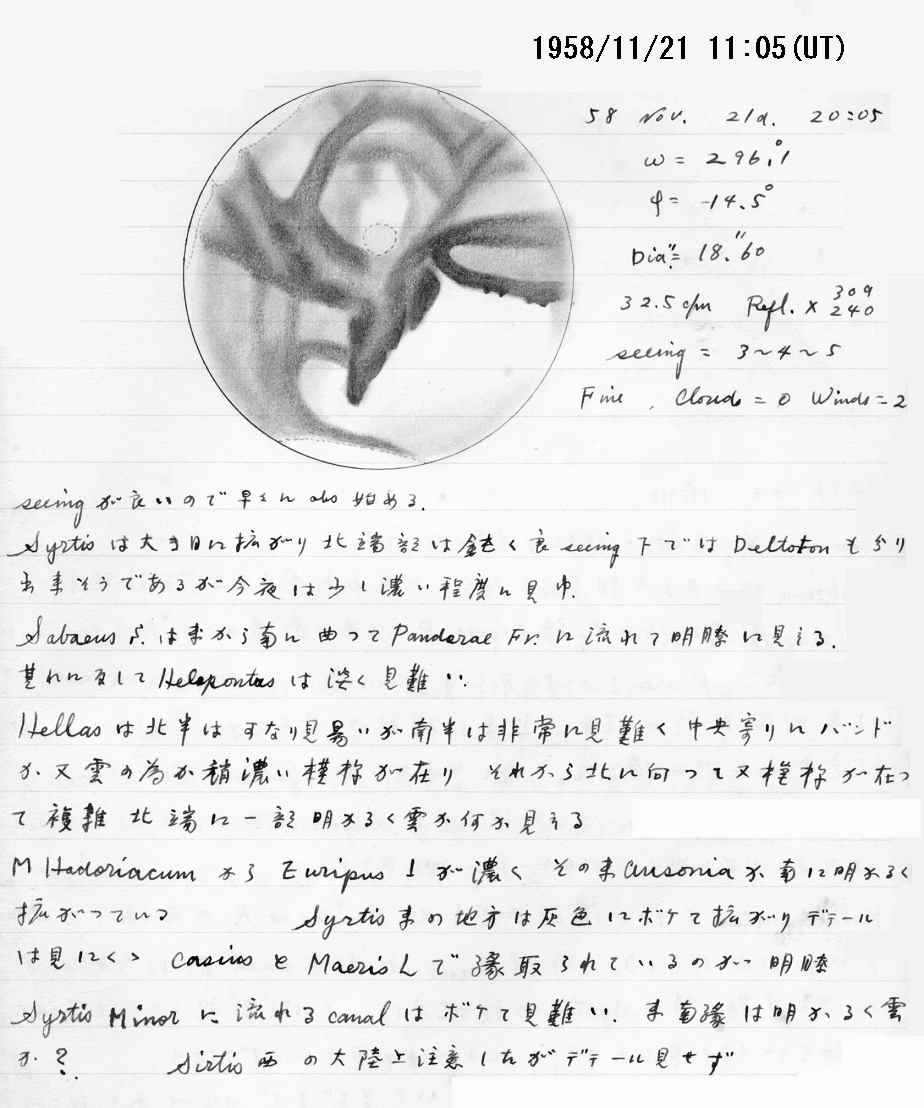 1958/11/21 11:05(UT)
58 Nov. 21d. 20:05
ω = 296.°1
φ = -14.5°
Dia = 18."60
32.5 cm Refl. × 309 240
seeing = 3~4~5
Fine, Clouds = 0 Winds = 2
seeing が良いので早々に obs 始める.
Syrtis は大き目に拡がり北端部は鈍く良 seeing 下では Deltoton も分り
出来そうであるが今夜は少し濃い程度に見ゆ.
Sabaeus S. は東から南に曲って Pandorae Fr. に流れて明瞭に見える.
其れに反して Helespontus は淡く見難い.
Hellas は北半はすなり見易いが南半は非常に見難く中央寄りにバンド
か又雲の為か稍濃い模様が在り それから北に向って又模様が在っ
て複雑 北端に一部明かるく雲か何か見える
M Hadoriacum から Euripus 1 が濃く その東 Ausonia が南に明かるく
拡がっている Syrtis 東の地方は灰色にボケて拡がりデテール
は見にくゝ Casius と Maeris L で縁取られているのが明瞭
Syrtis Minor に流れる canal はボケて見難い. 東南縁は明かるく雲
か? Sirtis 西の大陸上注意したがデテール見せず